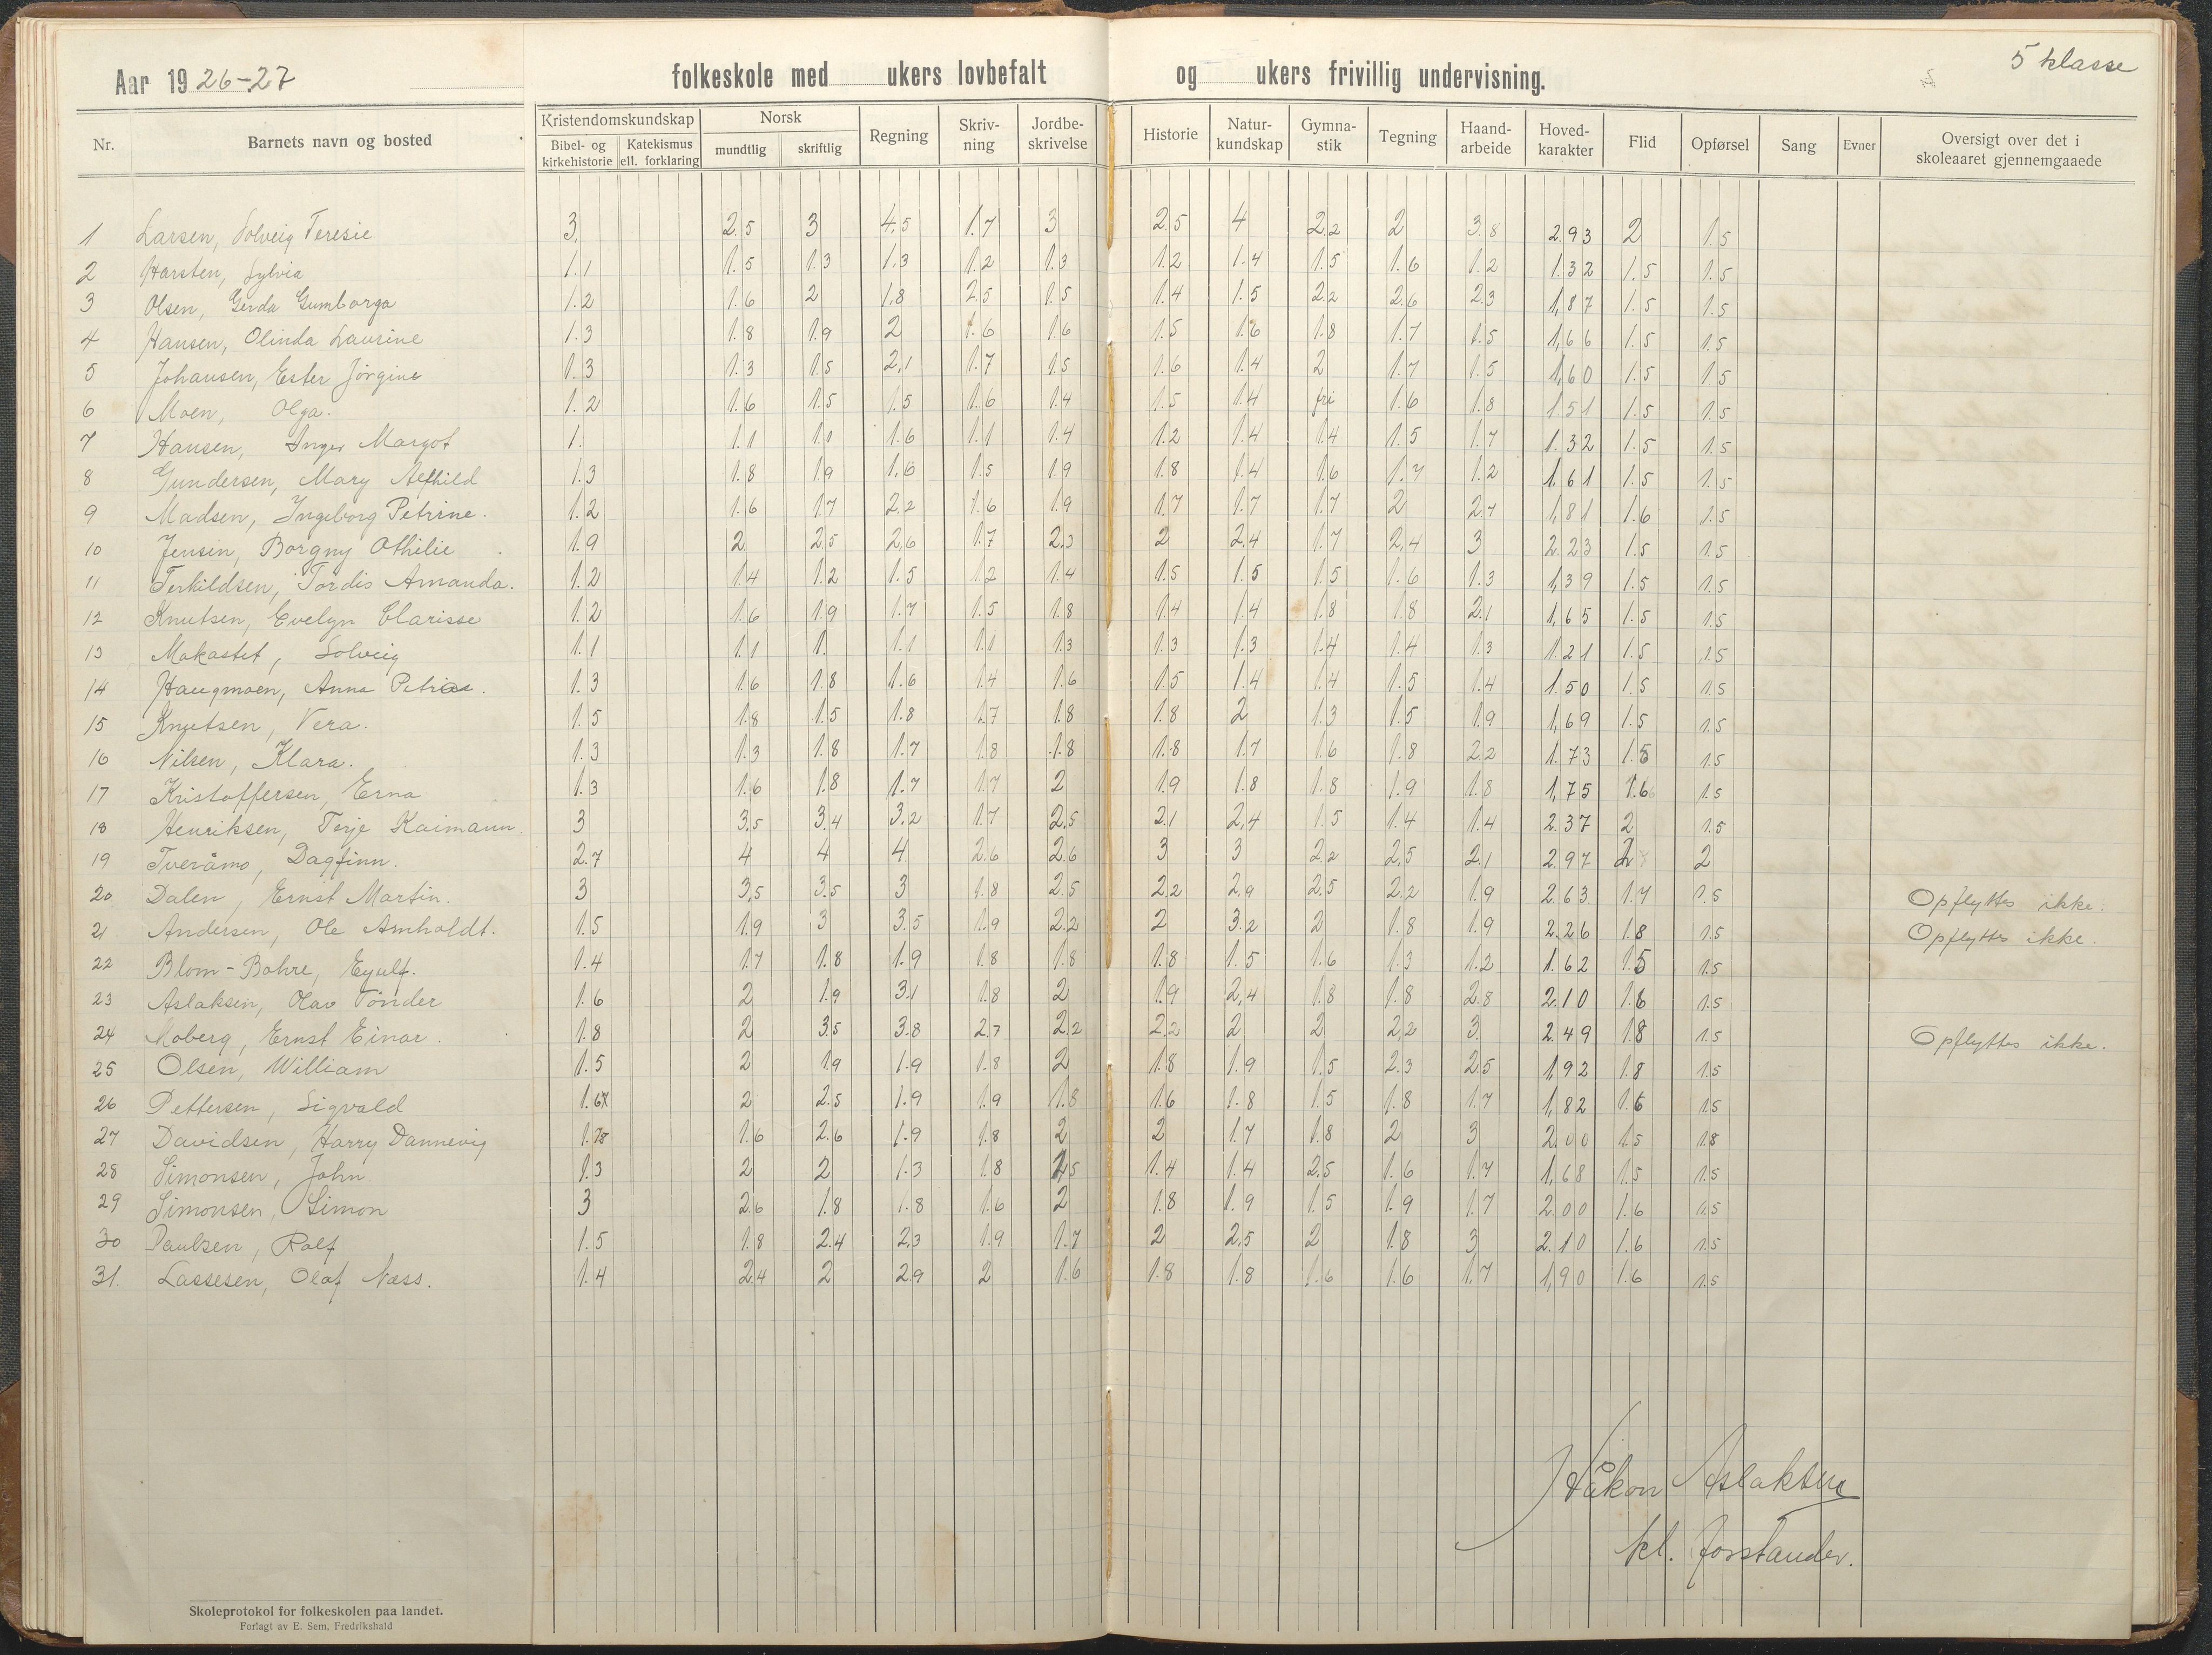 5 klasse
Aar 1926-27 folkeskole med ukers lovbefalt og ukers frivillig undervisning.
Nr. Barnets navn og bosted Kristendomskundskap Bibel- og kirkehistorie Katekismus ell. forklaring Norsk mundtlig skriftlig Regning Skriv-ning Jordbe-skrivelse Historie Natur-kundskap Gymna-stik Tegning Haand-arbeide Hoved-karakter Flid Opførsel Sang Evner Oversigt over det i skoleaaret gjennemgaaede
1 Larsen, Solveig Teresie 3. 2.5 3 4.5 1.7 3 2.5 4 2.2 2 3.8 2.93 2 1.5
2 Harsten, Sylvia 1.1 1.5 1.3 1.3 1.2 1.3 1.2 1.4 1.5 1.6 1.2 1.32 1.5 1.5
3 Olsen, Gerda Gumborga 1.2 1.6 2 1.8 2.5 1.5 1.4 1.5 2.2 2.6 2.3 1,87 1.5 1.5
4 Hansen, Olinda Laurine 1.3 1.8 1.9 2 1.6 1.6 1.5 1.6 1.8 1.7 1.5 1,66 1.5 1.5
5 Johansen, Ester Jörgine 1.3 1.3 1.5 2,1 1.7 1.5 1.6 1.4 2 1.7 1.5 1,60 1.5 1.5
6 Moen, Olga. 1.2 1.6 1.5 1.5 1.6 1.4 1.5 1.4 fri 1.6 1.8 1.51 1.5 1.5
7 Hansen, Inger Margot 1. 1.1 1.0 1.6 1.1 1.4 1.2 1.4 1.4 1.5 1.7 1.32 1.5 1.5
8 Gundersen, Mary Alfhild 1.3 1.8 1.9 1.6 1.5 1.9 1.8 1.4 1.6 1.7 1.2 1.61 1.5 1.5
9 Madsen, Ingeborg Petrine. 1.2 1.6 1.7 2.2 1.6 1.9 1.7 1.7 1.7 2 2.7 1,81 1.6 1.5
10 Jensin, Borgny Othilie 1.9 2 2.5 2,6 1.7 2.3 2 2.4 1.7 2,4 3 2.23 1.5 1.5
11 Terkildsen, Tordis Amanda. 1.2 1.4 1.2 1.5 1.2 1.4 1.5 1.5 1.5 1.6 1.3 1,39 1.5 1.5
12 Knutsen, Evelyn Clarisse 1.2 1.6 1.9 1.7 1.5 1.8 1.4 1.4 1.8 1.8 2.1 1,65 1.5 1.5
13 Makastet, Solveig 1.1 1.1 1. 1.1 1.1 1.3 1.3 1.3 1.4 1.4 1.3 1.21 1.5 1.5
14 Haugmoen, Anna 1.3 1.6 1.8 1.6 1.4 1.6 1.5 1.4 1.4 1.5 1.4 1.50 1.5 1.5
15 Knutsen, Vera. 1.5 1.8 1.5 1.8 1.7 1.8 1.8 2 1.3 1.5 1.9 1,69 1.5 1.5
16 Nilsen, Klara. 1.3 1.3 1.8 1.7 1.8 1.8 1.8 1.7 1.6 1.8 2.2 1.73 1.5 1.5
17 Kristoffersen, Erna 1.3 1.6 1.8 1.7 1.7 2 1.9 1.8 1.8 1.9 1.8 1,75 1.6 1.5
18 Henriksen, Terje Kaimann. 3 3,5 3.4 3.2 1.7 2.5 2.1 2,4 1.5 1.4 1.4 2.37 2 1.5
19 Tveråmo, Dagfinn. 2.7 4 4 4 2.6 2.6 3 3 2.2 2,5 2.1 2.97 2 2
20 Dalen, Ernst Martin. 3 3,5 3.5 3 1.8 2.5 2.2 2,9 2.5 2.2 1.9 2.63 1.7 1.5 Opflyttes ikke.
21 Andersen, Ole Arnholdt. 1.5 1.9 3 3.5 1.9 2.2 2 3.2 2 1.8 1.9 2.26 1.8 1.5 Opflyttes ikke.
22 Blom-Bakre, Eyulf. 1.4 1.7 1.8 1.9 1.8 1.8 1.8 1.5 1.6 1.3 1.2 1.62 1.5 1.5
23 Aslaksen, Olav Tönder 1.6 2 1.9 3.1 1.8 2 1.9 2,4 1.8 1.8 2.8 2.10 1.6 1.5
24 Moberg, Ernst Einar. 1.8 2 3.5 3.8 2.7 2.2 2.2 2 2 2,2 3. 2.49 1.8 1.5 Opflyttes ikke.
25 Olsen, William 1.5 2 1.9 1.9 1.8 2 1.8 1.9 1.5 2.3 2.5 1,92 1.8 1.5
26 Pettersen, Sigvald 1.6 2 2.5 1.9 1.9 1.8 1.6 1.8 1.5 1.8 1.7 1,82 1.6 1.5
27 Davidsen, Harry Dannevig 1.6 2.6 1.9 1.8 2 2 1.7 1.8 2 3 2.00 1.5 1.8
28 Simonsen, John 1.3 2 2 1.3 1.8 1.4 1.4 2.5 1.6 1.7 1,68 1.5 1.5
29 Simonsen, Simon 3 2.6 1.8 1.8 1.6 2 1.8 1.9 1.5 1.9 1.7 2.00 1.6 1.5
30 Paulsen, Rolf 1.5 1.8 2.4 2,3 1.9 1.7 2 2,5 2 1.8 3 2.10 1.6 1.5
31. Lassesen, Olaf Næss. 1.4 2.4 2 2.9 2 1.6 1.8 1.8 1.6 1.6 1,7 1,90 1.6 1.5
Håkon Aslaksen
kl. forstander.
Skoleprotokol for folkeskolen paa landet.
Forlagt av E. Sem, Fredrikshald